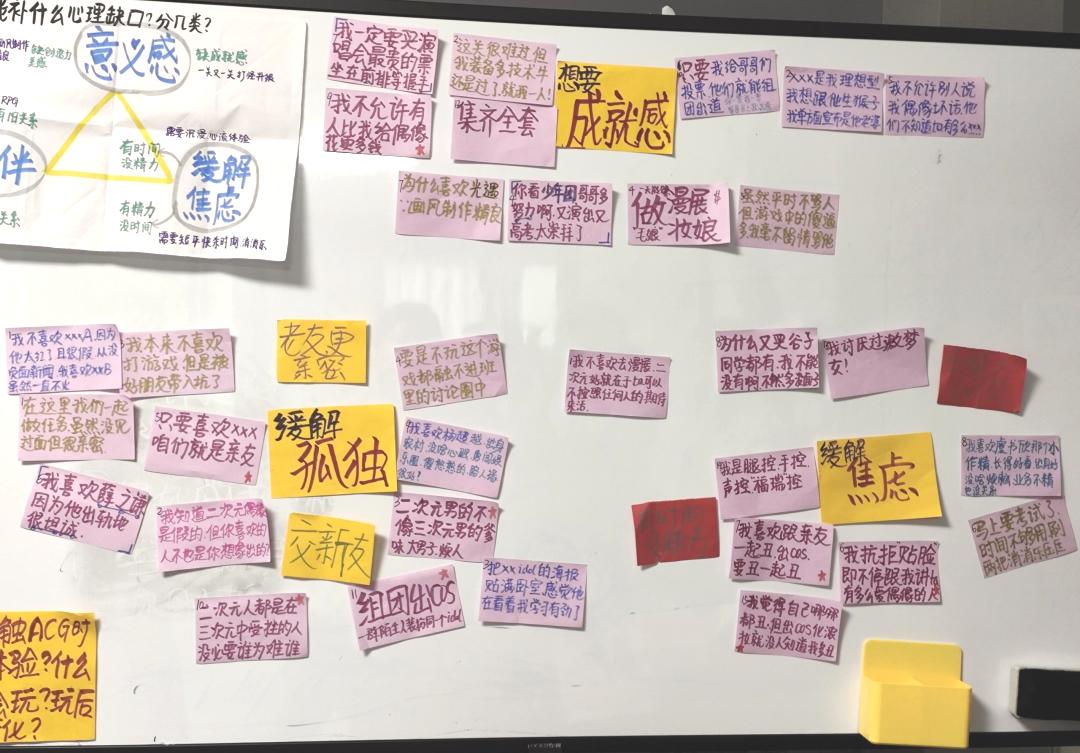 补什么心理缺口?分几类?
意义感
缺成就感
一关又一关打怪升级
RPG
需要沉浸心流体验
有时间
没精力
伴
缓解
焦虑
有精力
没时间
关系
需要短平快杀时间消消乐
我一定要买演
唱会最贵的票
坐在前排等握手
这关很难过但
我装备多技术牛
还是过了,就我一人!
我不允许有
人比我给偶像
花更多钱
集齐全套
想要
成就感
只要我给哥哥们
投票他们就能组
团出道
xxx是我理想型
我想跟他生猴子
我单方面宣布是他老婆
我不允许别人说
我偶像坏话,他
们不知道他有多么xxx
为什么喜欢光遇
:画风制作精良
你看少年团哥哥多
努力啊,又演出又
高考太崇拜了
做漫展
毛娘 妆娘
虽然平时不骂人
但游戏中的傻逼
多我毫不留情骂他
我不喜欢xxxA,因为
他太红了且很假,从没
负面新闻,我喜欢xxxB
虽然一直不火
我本来不喜欢
打游戏,但是被
好朋友带入坑了
老友更
亲密
要是不玩这个游
戏都融不进班
里的讨论圈中
我不喜欢去漫展,二
次元站就在于比可以
不按照任何人的期待
来活
为什么又买谷子
同学都有,我不能
没有啊不然多没面子
我讨厌过激梦
女!
在这里我们一起
做任务虽然没见
过面但很亲密
只要喜欢xxx
咱们就是亲友
缓解
孤独
我喜欢杨超越,出身
农村,没啥心眼,勇闯娱
乐圈,
我是腿控,手控,
声控"福瑞"控
缓解
焦虑
我喜欢虞书欣那个小
作精,长得好看
没啥烦恼,业务不精
也没关系
我喜欢薛之谦
因为他出轨地
很坦诚
我知道二次元偶像
是假的,但你喜欢的
人不也是你想象出的?
交新友
二次元男的不
像三次元男的爹
味大男子,烦人
我喜欢跟亲友
一起丑,出cos,
要丑一起丑
我抗拒贴脸
即不停跟我讲ta
有多么爱偶像的人
马上要考试了,
时间不够用刷
两把消消乐压压
二次元人都是在
三次元中受挫的人
没必要谁为难谁
组团出COS
一群陌生人装扮同个idol
把xx idol的海报
贴满卧室,感觉他
在看着我学习有劲了
我觉得自己哪哪
都丑,但出cos化浓
妆就没人知道我多丑
触ACG时
体验?什么
会玩?玩后
化?